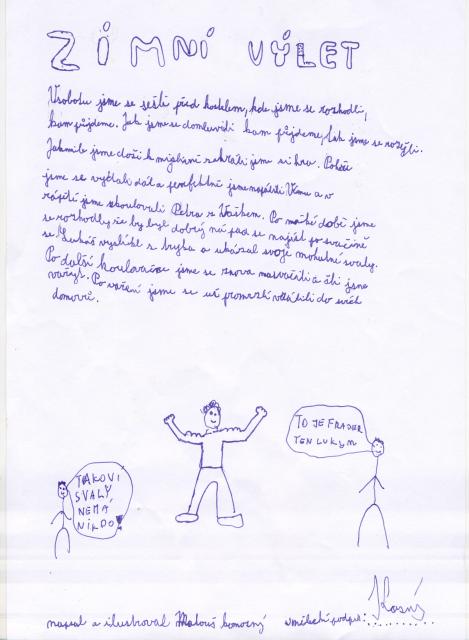 ZIMNÍ VÝLET
V sobotu jsme se sešli před kostelem, kde jsme se rozhodli,
kam půjdeme. Jak jsme se domluvili kam půjdeme, tak jsme se rozešli.
Jakmile jsme došli k mýtině zahráli jsme si hru. Potom
jsme se vydali dál a perfektně jsme napálili Vímu a v
zápětí jsme zkoulovali Petra s Vaškem. Po malé době jsme
se rozhodli, že by byl dobrý nápad se najíst po svačině
se Lukáš vysvlékl z trička a ukázal svoje mohutné svaly.
Po další koulovačce jsme se znova nasvačili a šli jsme
vařit. Po vaření jsme se už promrzlí vrátili do svých
domovů.
TAKOVÍ
SVALY,
NEMÁ
NIKDO!
TO JE FRAJER
TEN LUKYM
napsal a ilustroval Matouš umělecký podpis: